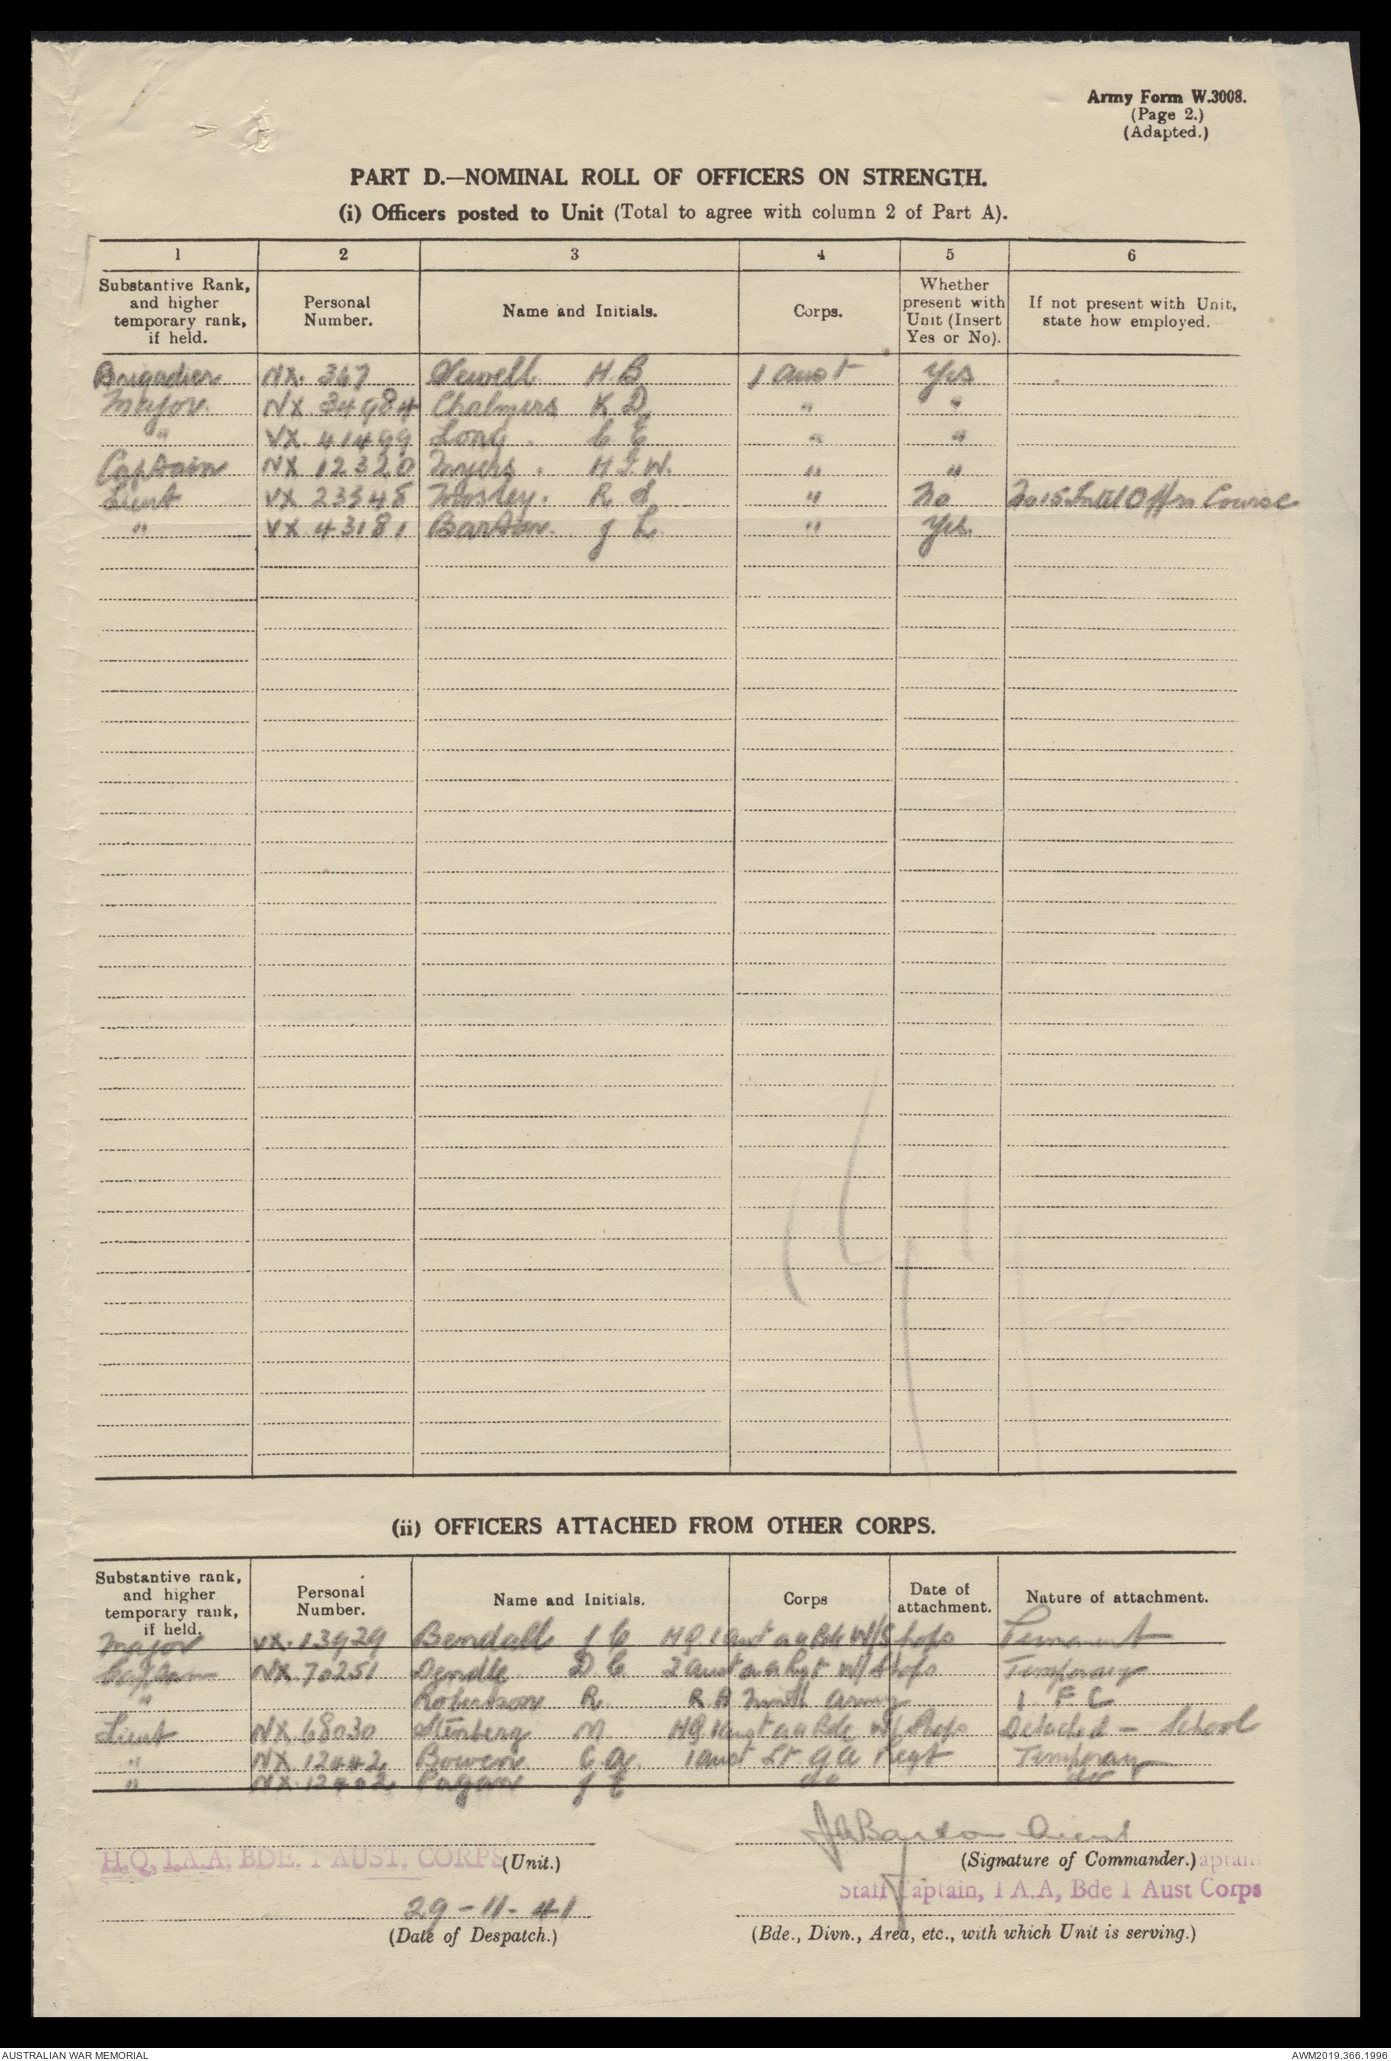 Army Form W.3008.
(Page 2.)
(Adapted.)
PART D.—NOMINAL ROLL OF OFFICERS ON STRENGTH.
(i) Officers posted to Unit (Total to agree with column 2 of Part A).
1 2 3 4 5 6
Substantive Rank, and higher temporary rank, if held. Personal Number. Name and Initials. Corps. Whether present with Unit (Insert Yes or No). If not present with Unit, state how employed.
Brigadier NX. 367 Newell H.B 1 Aust Yes
Major. NX 34984 Chalmers K D " "
" VX. 41499 Long. C E " "
Captain NX 12320 Myers. H J W. " "
Lieut VX 23348 Mosley. R L " No No 15 Intell Offrs Course
" VX 43181 Barton. J L. " Yes.
(ii) OFFICERS ATTACHED FROM OTHER CORPS.
Substantive rank, and higher temporary rank, if held. Personal Number. Name and Initials. Corps Date of attachment. Nature of attachment.
Major VX. 13929 Bendall J C HQ 1 Aust a a Bde W/Shops Permanent
Captain NX. 70251 Dendle D C 2 Aust a a Rgt W/Shops Temporary
" Robertson R. R A Ninth Army 1 F C
Lieut NX. 68030 Steinberg M HQ 1 Aust a a Bde W/Shops Detached - School
" NX. 12442 Bowen C A. 1 Aust Lt A A Regt Temporary
" NX. 12402 Pagan J E do do
J L Barton Lieut
H.Q. 1.A.A. BDE. 1 AUST. CORPS (Unit.)
(Signature of Commander.) aptain
Staff Captain, 1 A.A, Bde 1 Aust Corps
29-11-41
(Date of Despatch.)
(Bde., Divn., Area, etc., with which Unit is serving.)
AUSTRALIAN WAR MEMORIAL
AWM2019.366.1996